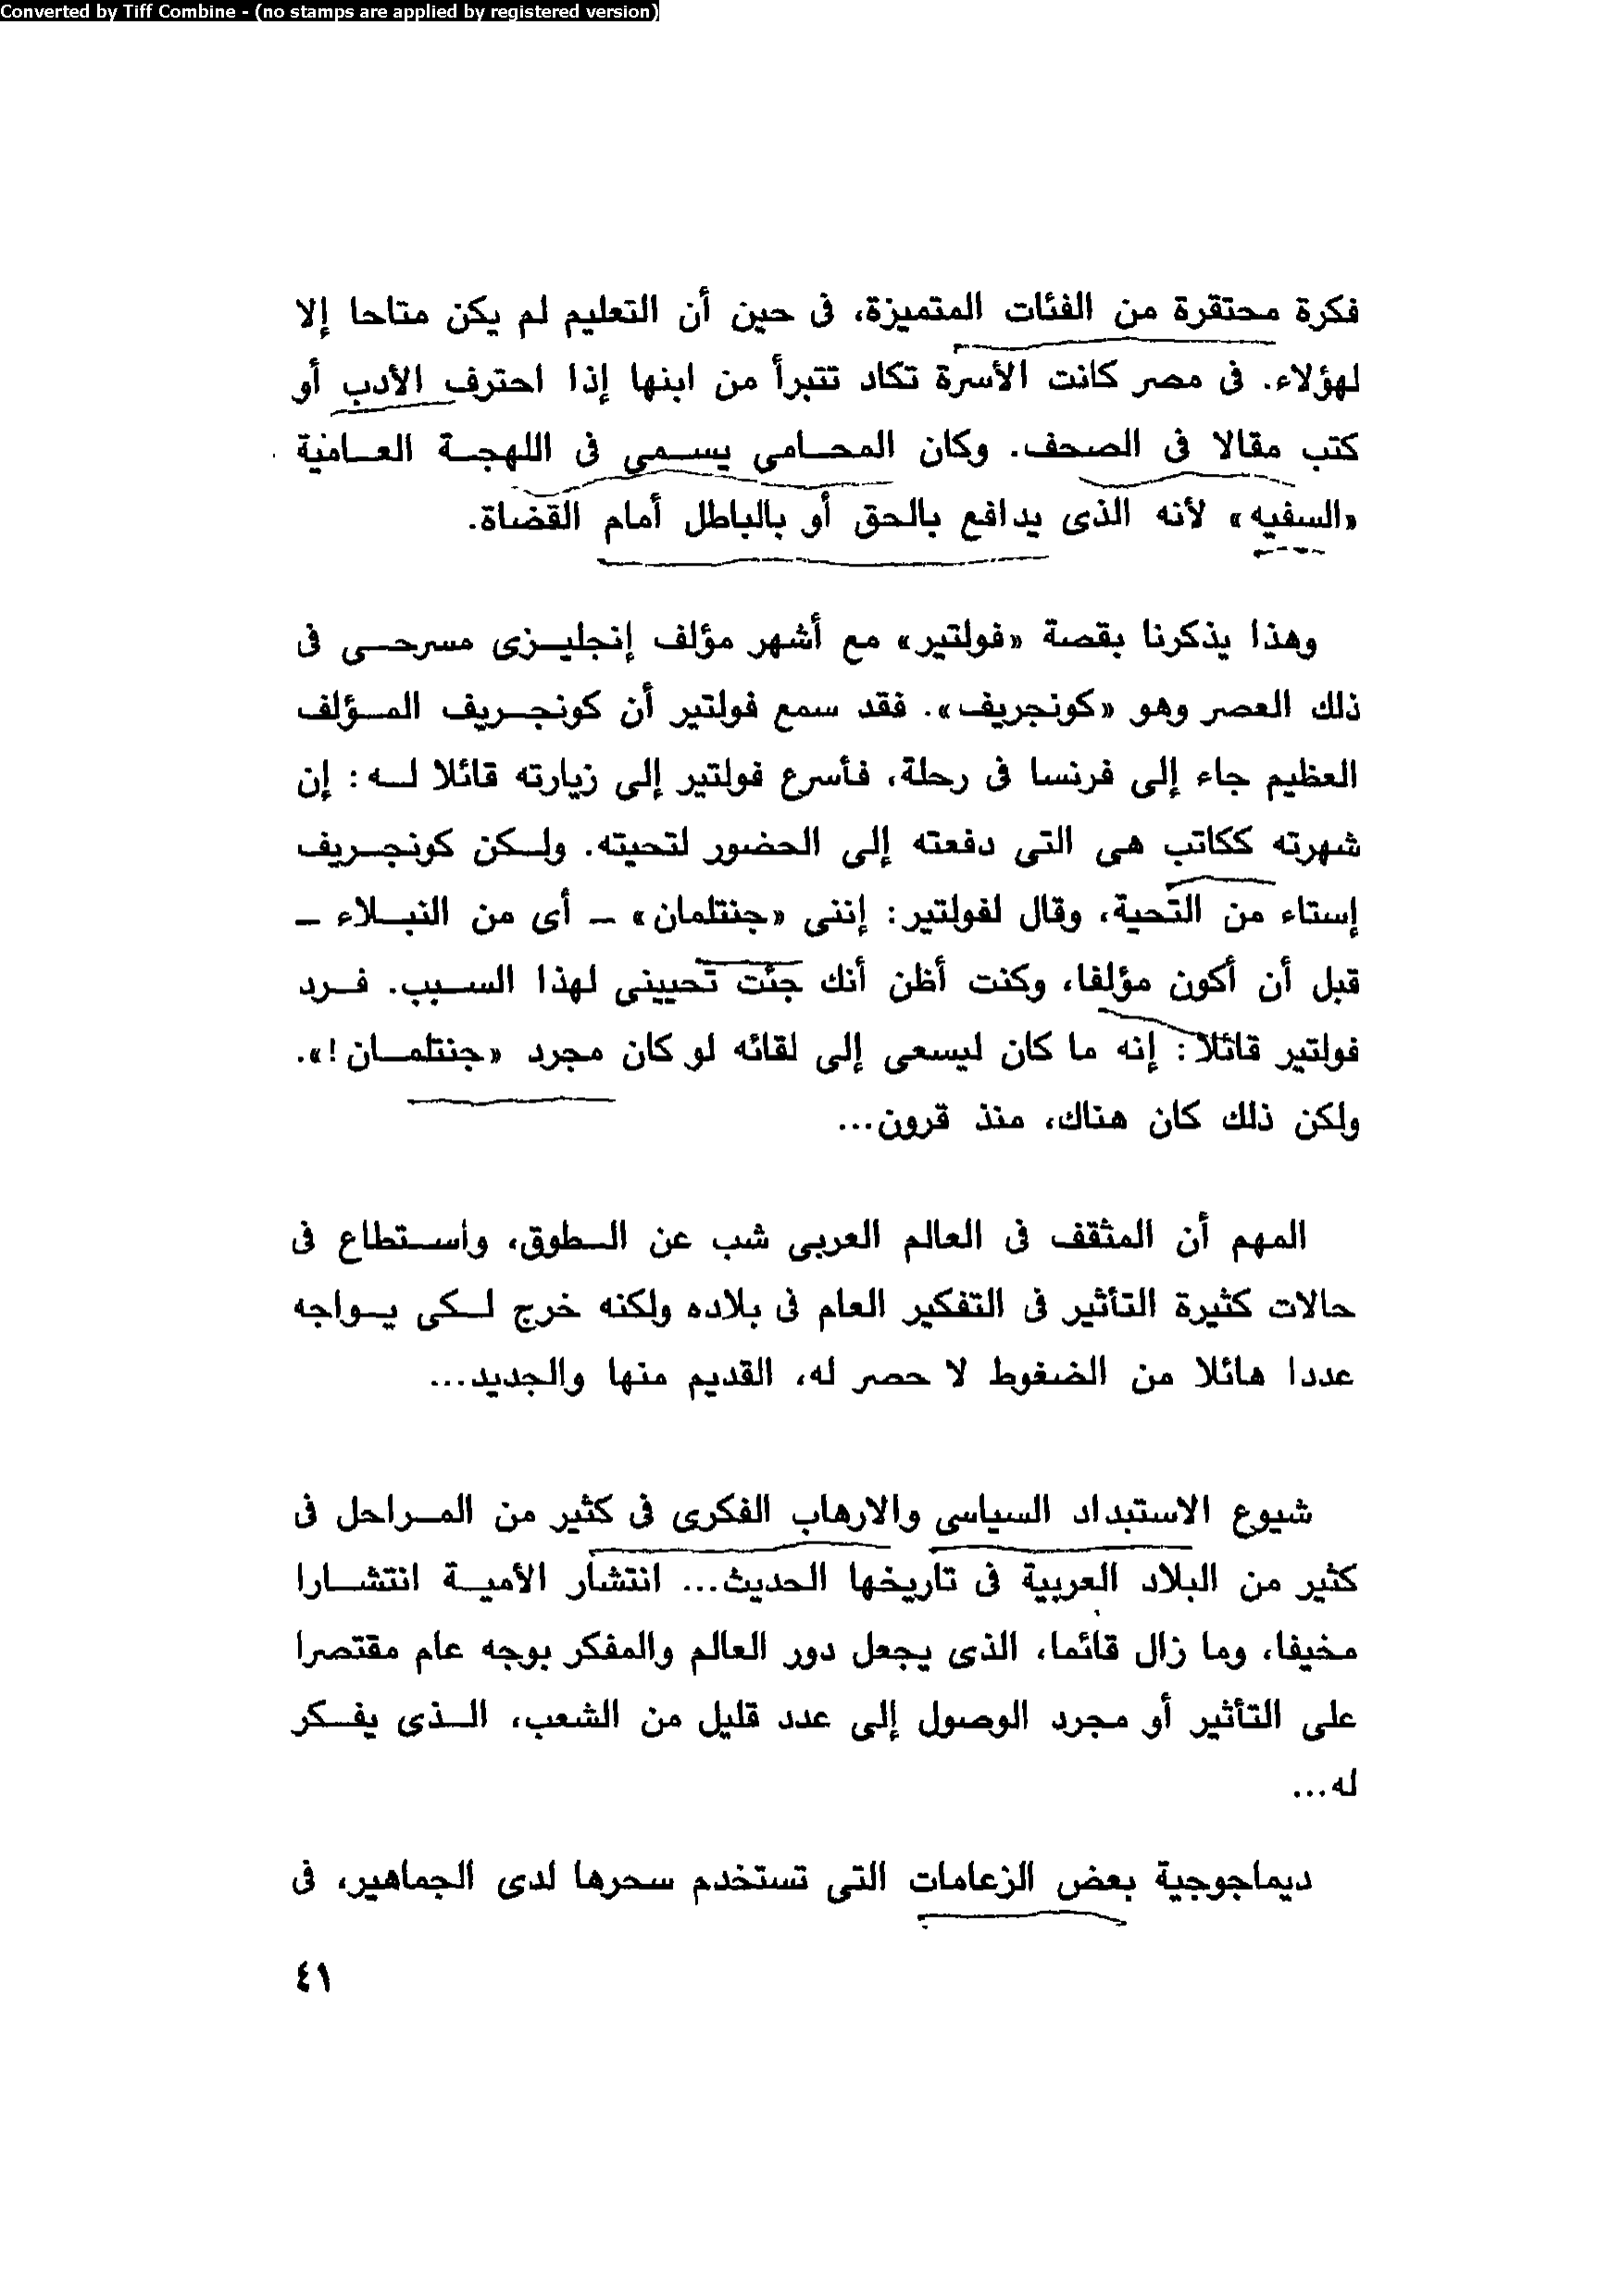 Converted by Tiff Combine - (no stamps are applied by registered version)
فكرة محتقرة من الفئات المتميزة، فى حين أن التعليم لم يكن متاحا إلا
لهؤلاء. فى مصر كانت الأسرة تكاد تتبرأ من ابنها إذا احترف الأدب أو
كتب مقالا فى الصحف. وكان المحامى يسمى فى اللهجة العامية
«السفيه» لأنه الذى يدافع بالحق أو بالباطل أمام القضاة.
وهذا يذكرنا بقصة «فولتير» مع أشهر مؤلف إنجليزى مسرحى فى
ذلك العصر وهو «كونجريف». فقد سمع فولتير أن كونجريف المؤلف
العظيم جاء إلى فرنسا فى رحلة، فأسرع فولتير إلى زيارته قائلا له : إن
شهرته ككاتب هى التى دفعته إلى الحضور لتحيته. ولكن كونجريف
إستاء من التحية، وقال لفولتير: إننى «جنتلمان» – أى من النبلاء –
قبل أن أكون مؤلفا، وكنت أظن أنك جئت تحيينى لهذا السبب. فرد
فولتير قائلا: إنه ما كان ليسعى إلى لقائه لو كان مجرد «جنتلمان!».
ولكن ذلك كان هناك، منذ قرون...
المهم أن المثقف فى العالم العربى شب عن الطوق، واستطاع فى
حالات كثيرة التأثير فى التفكير العام فى بلاده ولكنه خرج لكى يواجه
عددا هائلا من الضغوط لا حصر له، القديم منها والجديد...
شيوع الاستبداد السياسى والارهاب الفكرى فى كثير من المراحل فى
كثير من البلاد العربية فى تاريخها الحديث... انتشار الأمية انتشارا
مخيفا، وما زال قائما، الذى يجعل دور العالم والمفكر بوجه عام مقتصرا
على التأثير أو مجرد الوصول إلى عدد قليل من الشعب، الذى يفكر
له...
ديماجوجية بعض الزعامات التى تستخدم سحرها لدى الجماهير، فى
٤١